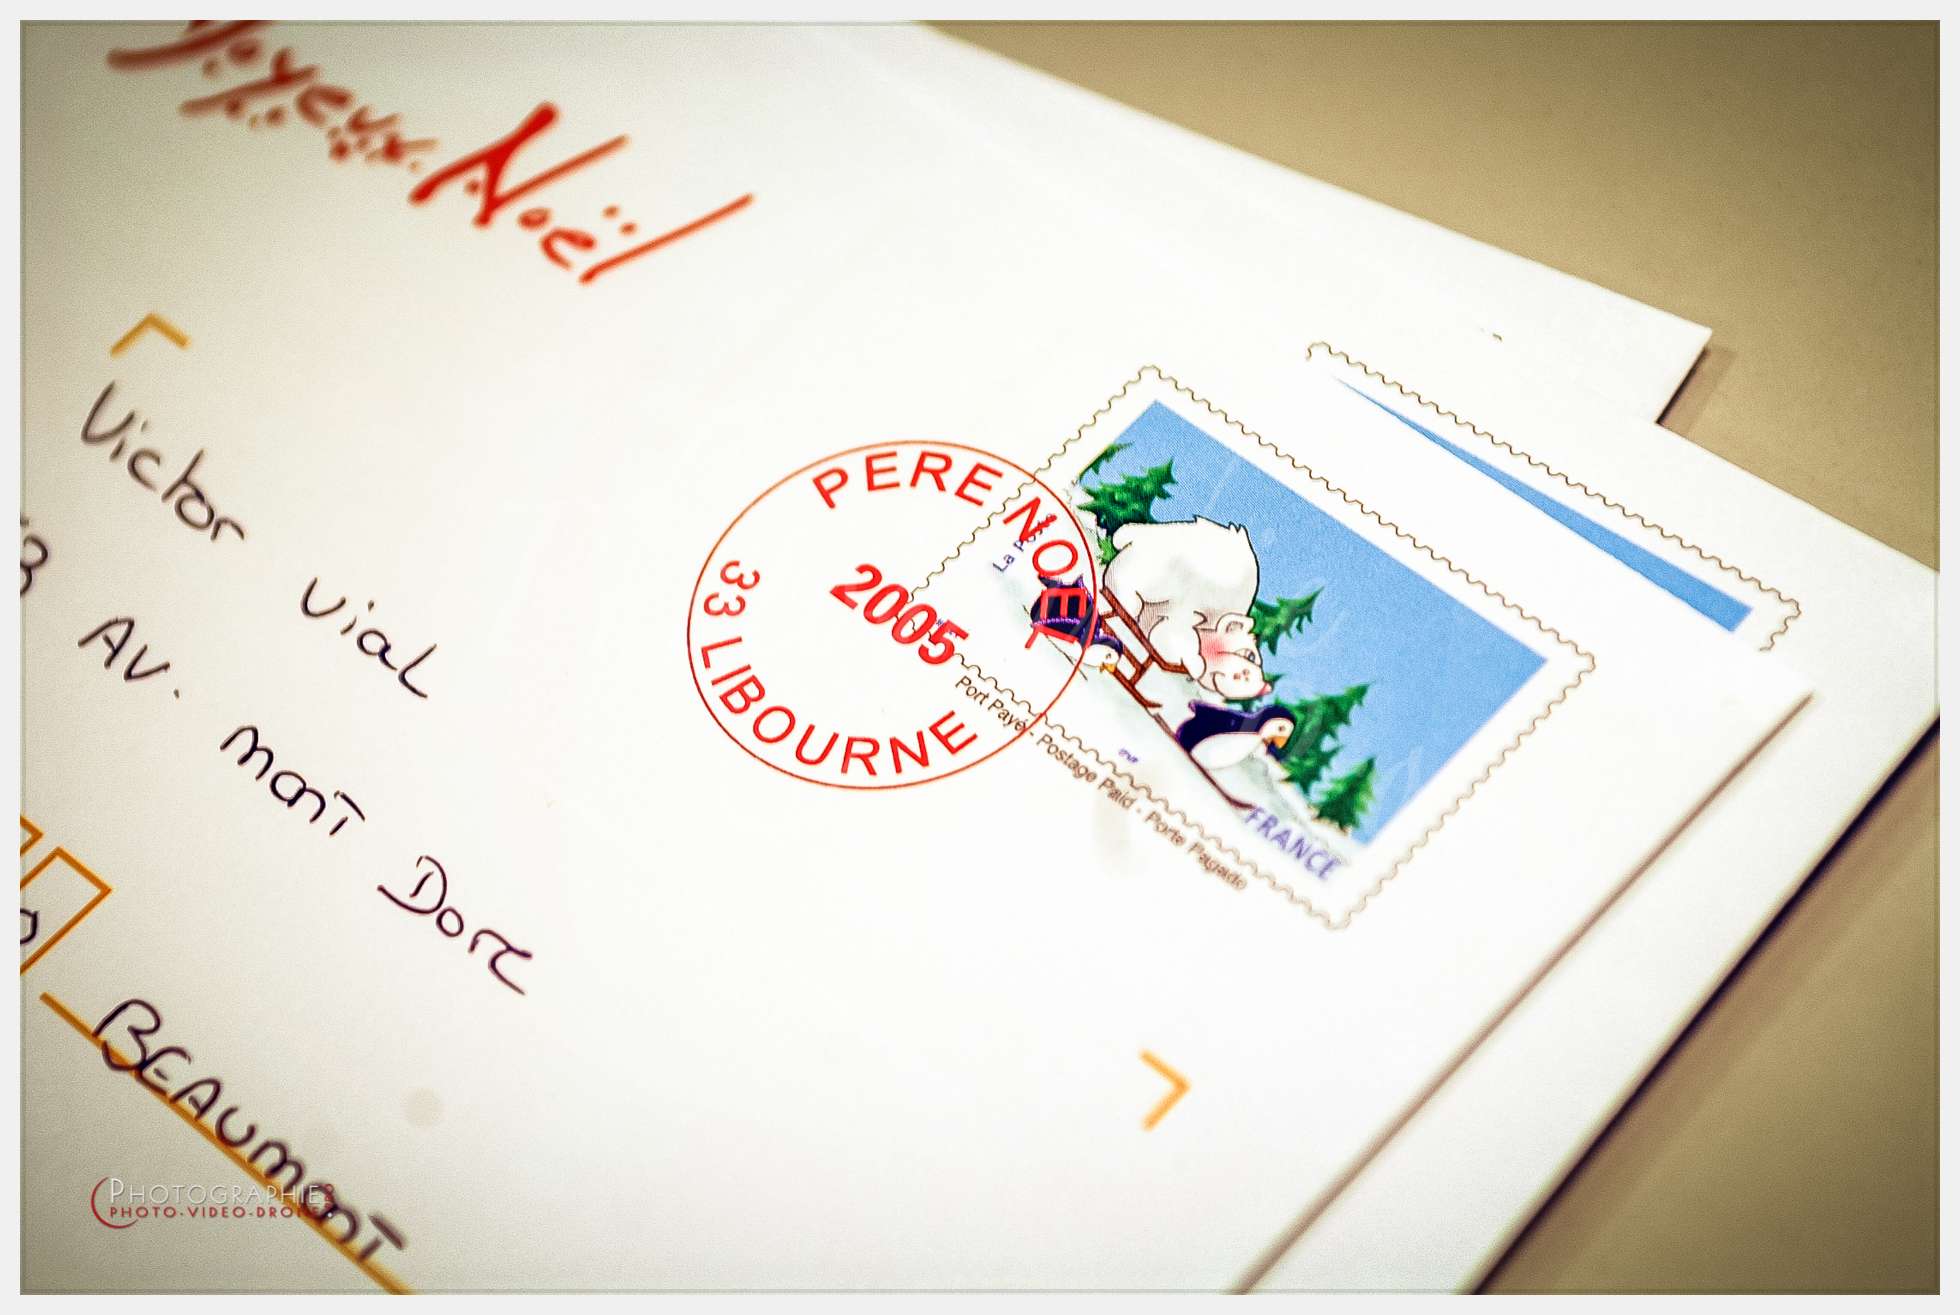 Joyeux Noël
PERE NOEL
2005
33 LIBOURNE
La Poste
FRANCE
Port Payé - Postage Paid - Porte Pagado
Victor Vial
AV. mont Dore
BEAUMONT
PHOTOGRAPHIE
PHOTO-VIDEO-DRONE